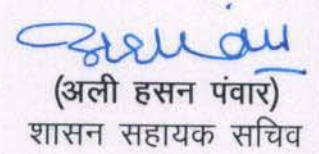 (अली हसन पंवार)
शासन सहायक सचिव